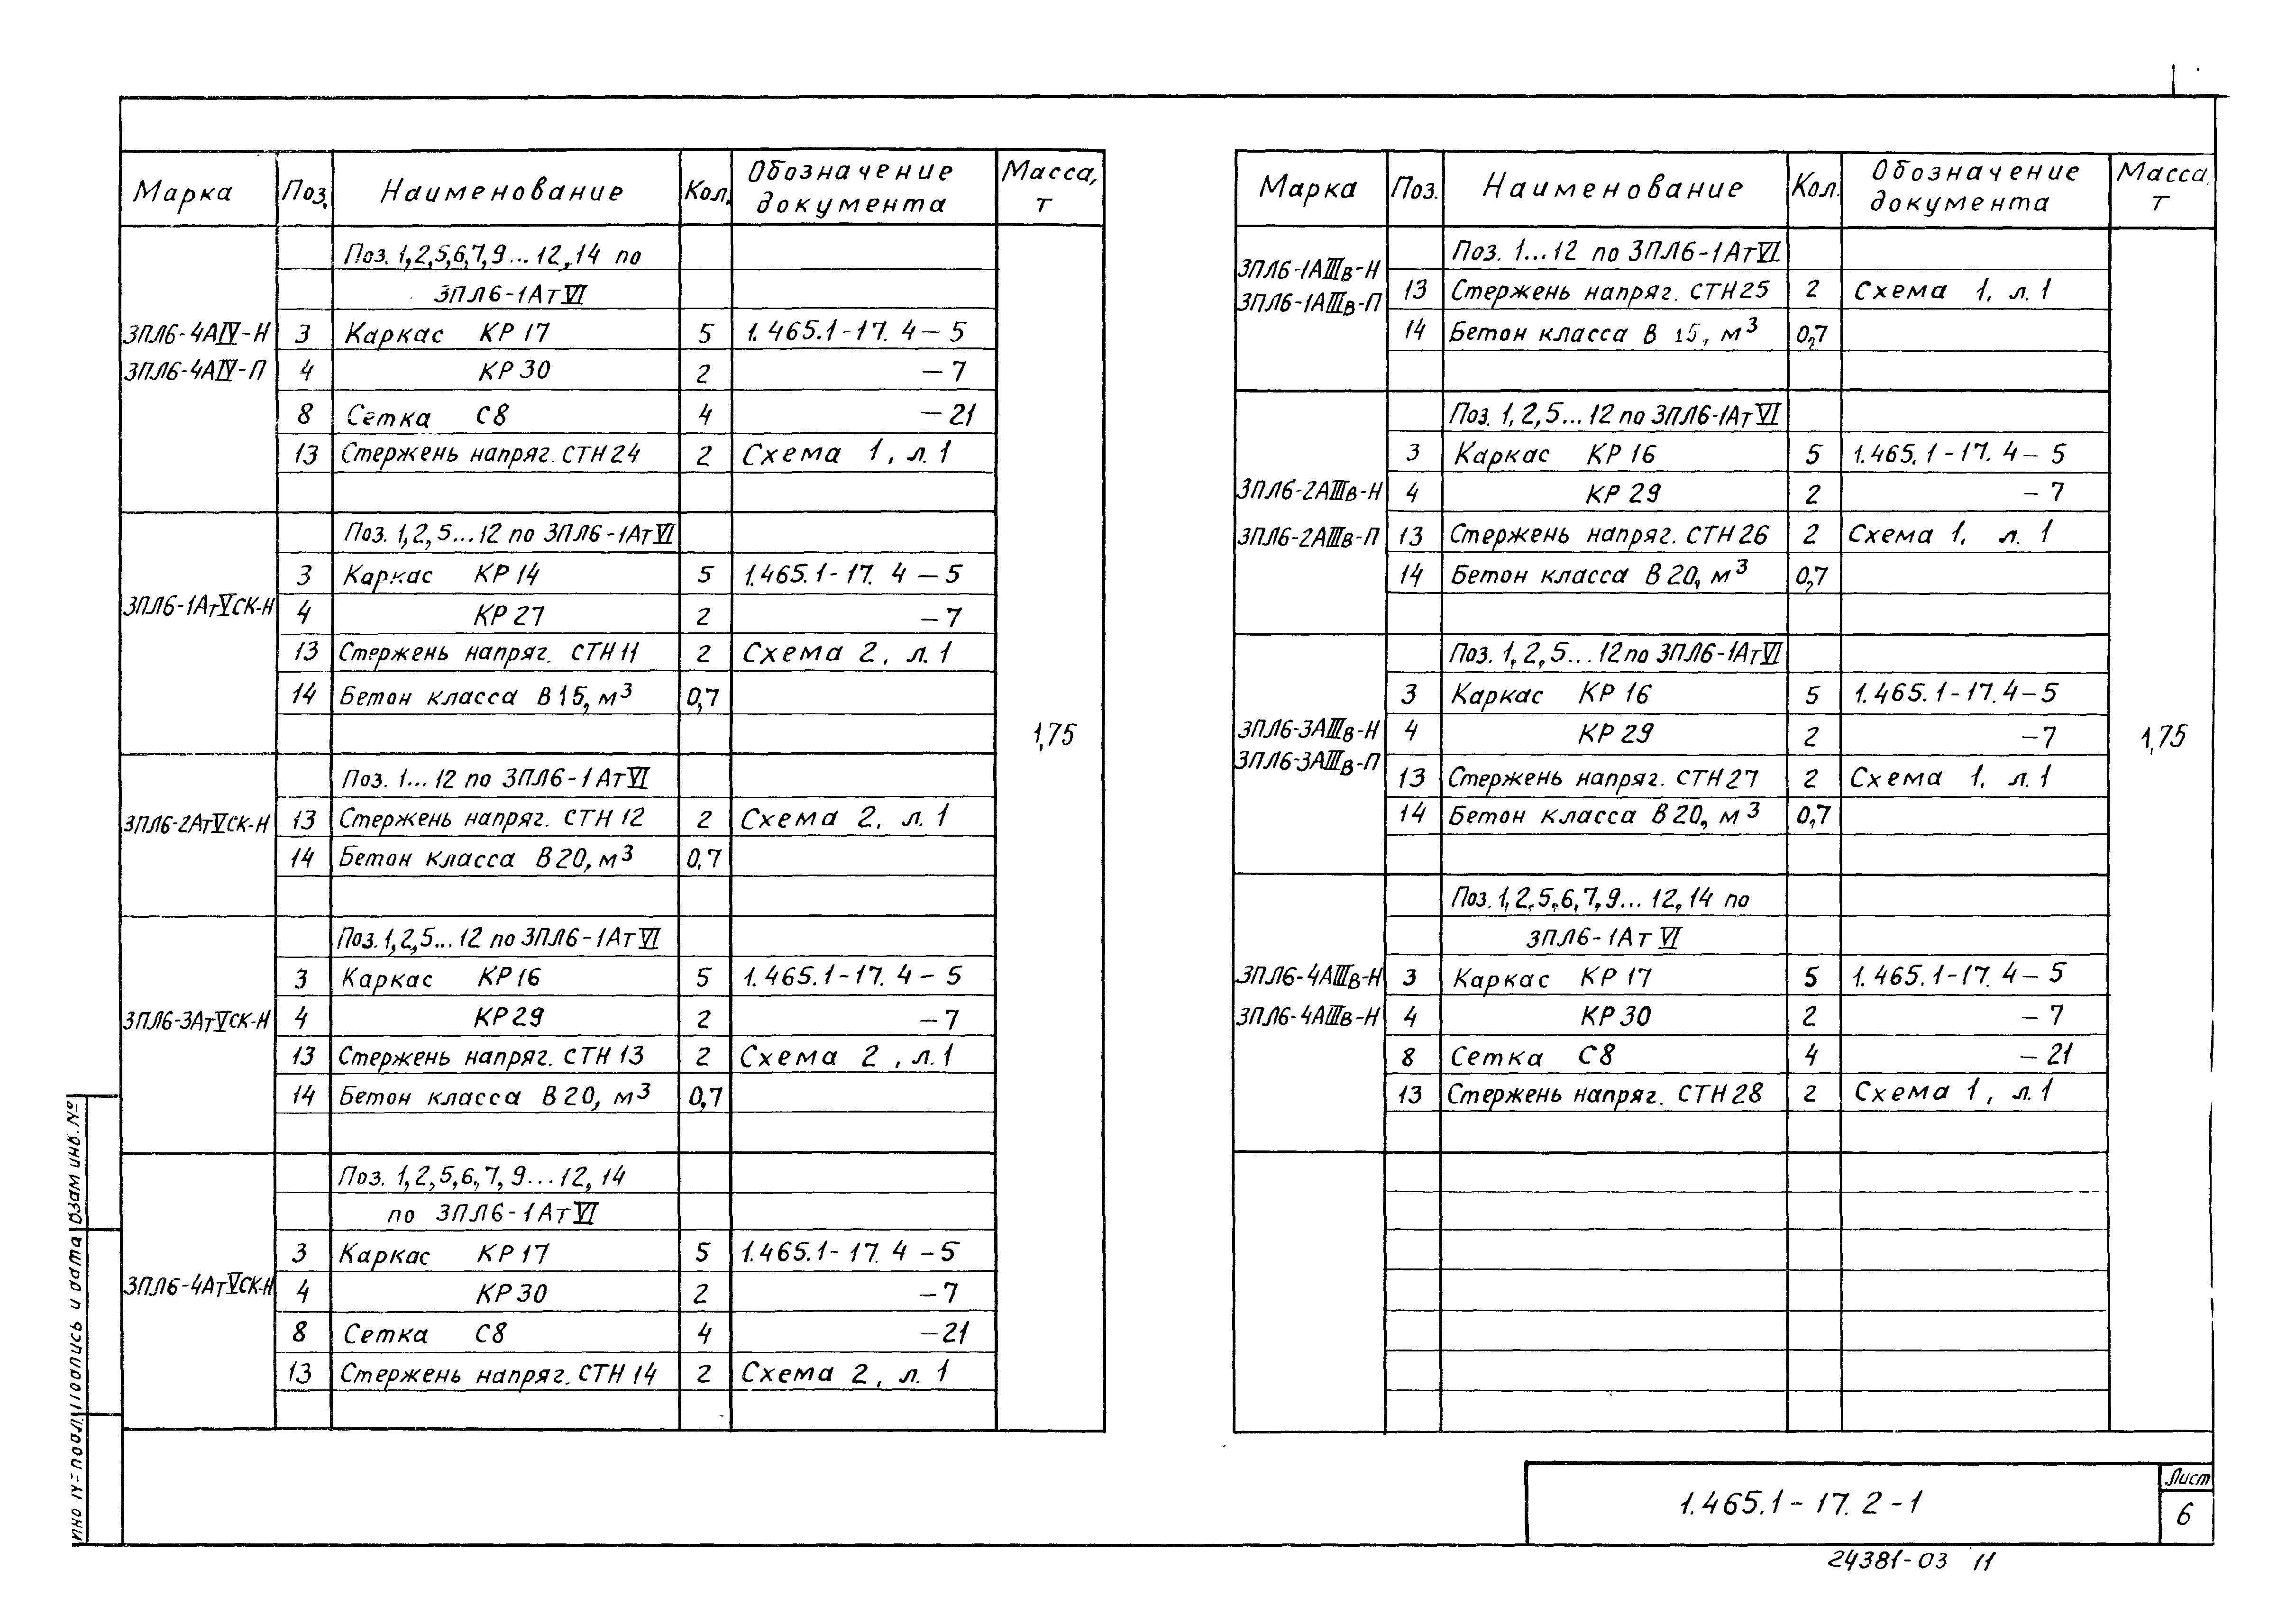 Марка Поз. Наименование Кол. Обозначение документа Масса, т
Поз. 1,2,5,6,7,9...12,14 по
3ПЛ6-1АтVI
3ПЛ6-4АIV-Н 3 Каркас КР17 5 1.465.1-17.4-5
3ПЛ6-4АIV-П 4 КР30 2 -7
8 Сетка С8 4 -21
13 Стержень напряг. СТН24 2 Схема 1, л.1
Поз. 1,2,5...12 по 3ПЛ6-1АтVI
3 Каркас КР14 5 1.465.1-17.4-5
3ПЛ6-1АтVСК-Н 4 КР27 2 -7
13 Стержень напряг. СТН11 2 Схема 2, л.1
14 Бетон класса В15, м³ 0,7
1,75
Поз. 1...12 по 3ПЛ6-1АтVI
3ПЛ6-2АтVСК-Н 13 Стержень напряг. СТН12 2 Схема 2, л.1
14 Бетон класса В20, м³ 0,7
Поз. 1,2,5...12 по 3ПЛ6-1АтVI
3 Каркас КР16 5 1.465.1-17.4-5
3ПЛ6-3АтVСК-Н 4 КР29 2 -7
13 Стержень напряг. СТН13 2 Схема 2, л.1
14 Бетон класса В20, м³ 0,7
Поз. 1,2,5,6,7,9...12,14
по 3ПЛ6-1АтVI
3 Каркас КР17 5 1.465.1-17.4-5
3ПЛ6-4АтVСК-Н 4 КР30 2 -7
8 Сетка С8 4 -21
13 Стержень напряг. СТН14 2 Схема 2, л.1
Марка Поз. Наименование Кол. Обозначение документа Масса, т
Поз. 1...12 по 3ПЛ6-1АтVI
3ПЛ6-1АIIIв-Н 13 Стержень напряг. СТН25 2 Схема 1, л.1
3ПЛ6-1АIIIв-П 14 Бетон класса В 15, м³ 0,7
Поз. 1,2,5...12 по 3ПЛ6-1АтVI
3 Каркас КР16 5 1.465.1-17.4-5
3ПЛ6-2АIIIв-Н 4 КР29 2 -7
3ПЛ6-2АIIIв-П 13 Стержень напряг. СТН26 2 Схема 1, л.1
14 Бетон класса В20, м³ 0,7
Поз. 1,2,5...12 по 3ПЛ6-1АтVI
3 Каркас КР16 5 1.465.1-17.4-5
3ПЛ6-3АIIIв-Н 4 КР29 2 -7
1,75
3ПЛ6-3АIIIв-П 13 Стержень напряг. СТН27 2 Схема 1, л.1
14 Бетон класса В20, м³ 0,7
Поз. 1,2,5,6,7,9...12,14 по
3ПЛ6-1АтVI
3ПЛ6-4АIIIв-Н 3 Каркас КР17 5 1.465.1-17.4-5
3ПЛ6-4АIIIв-Н 4 КР30 2 -7
8 Сетка С8 4 -21
13 Стержень напряг. СТН28 2 Схема 1, л.1
Взам инв. №
Подпись и дата
Инв № подл.
1.465.1-17.2-1
Лист
6
24381-03 11